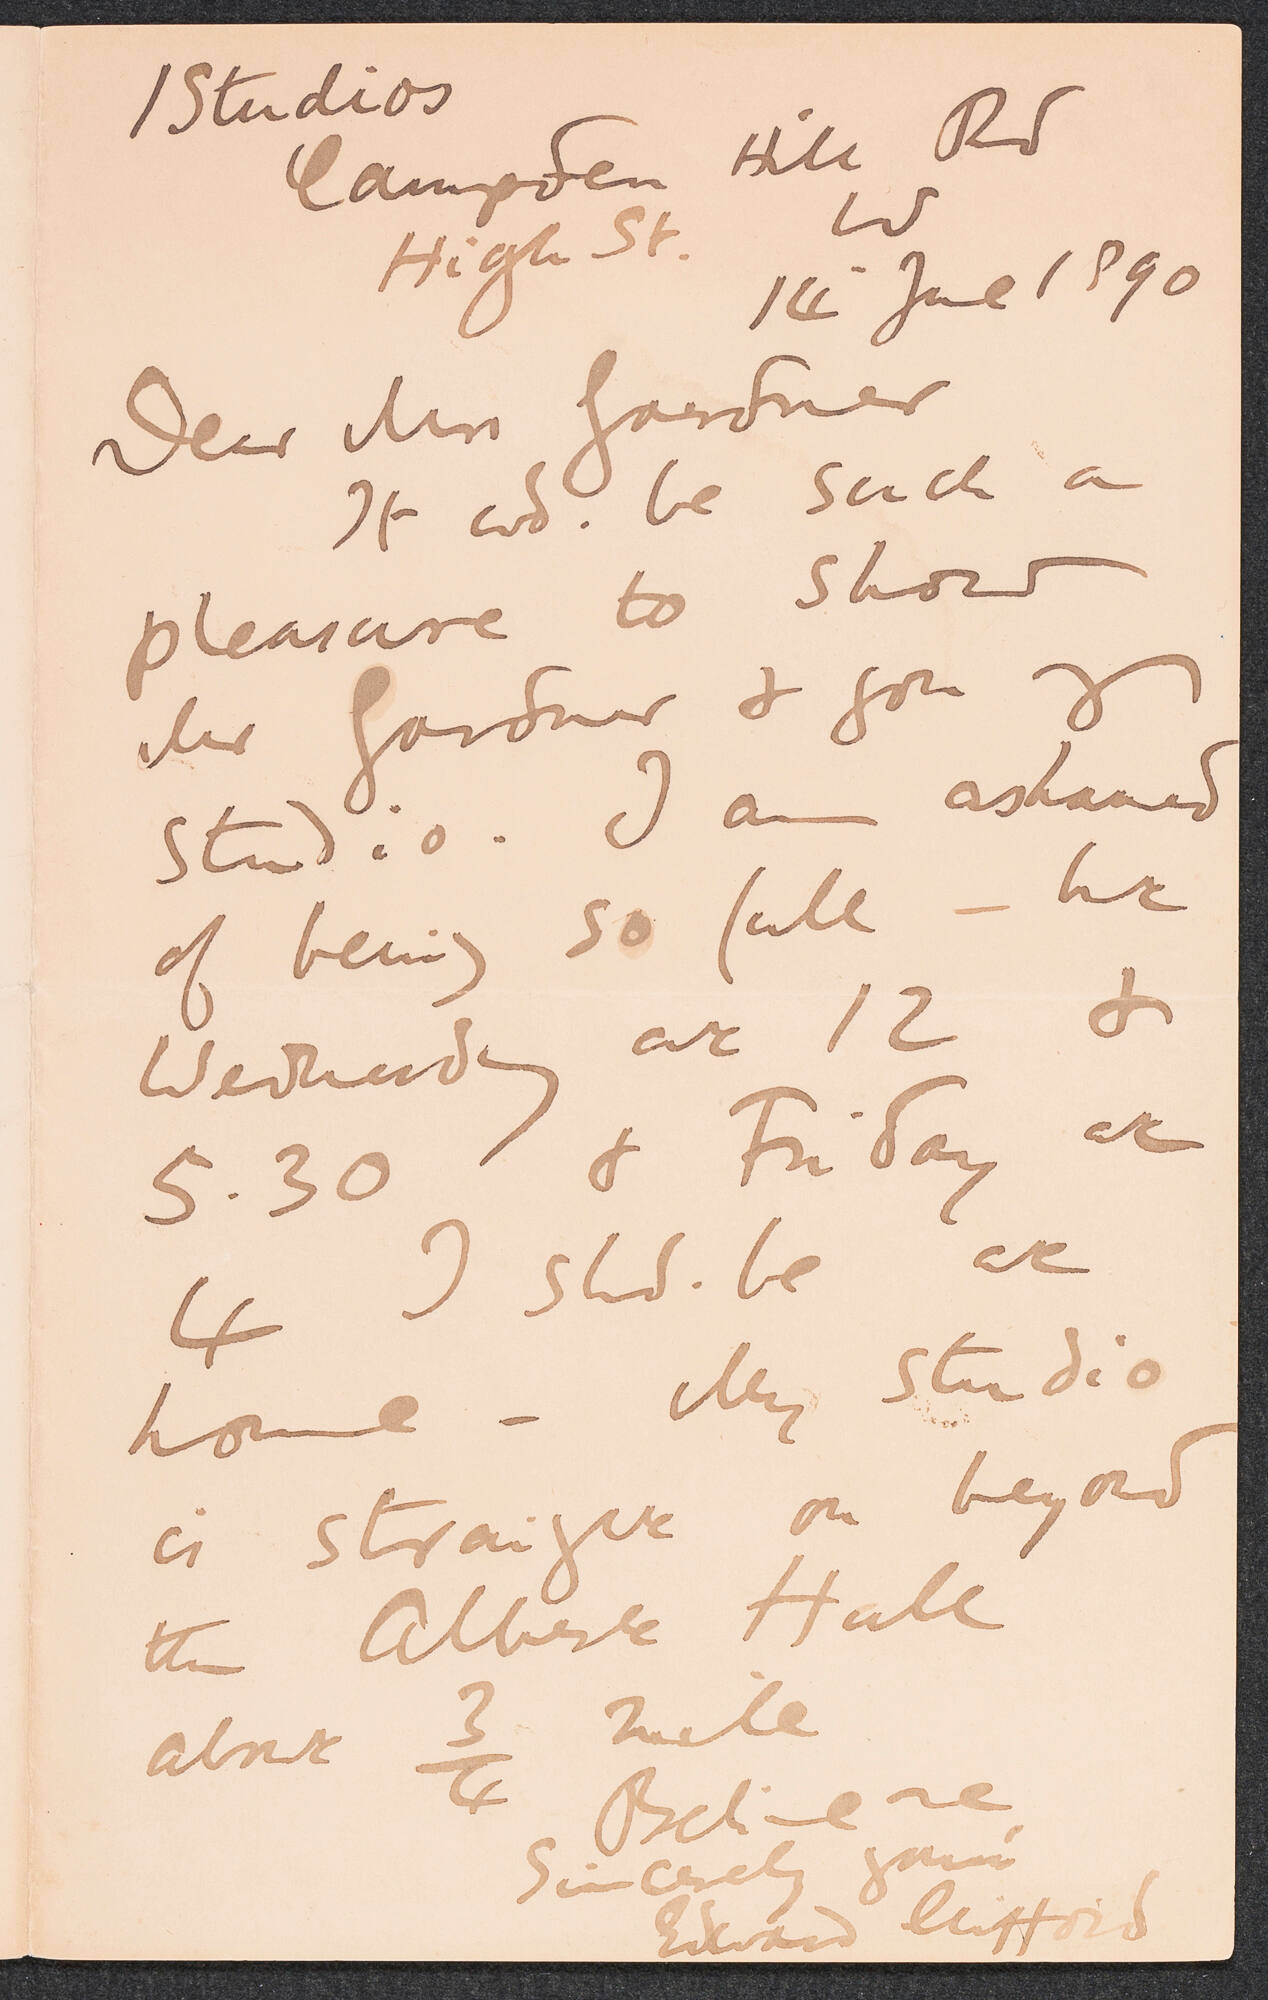 1 Studios
Campden Hill Rd
High St. W
14 June 1890
Dear Mrs Gardner
It wd. be such a
pleasure to show
Mr Gardner & you my
studio. I am ashamed
of being so full - but
Wednesday at 12 &
5.30 & Friday at
4 I shd. be at
home - My studio
is straight on beyond
the Albert Hall
about 3/4 mile
Believe me
Sincerely yours
Edward Clifford